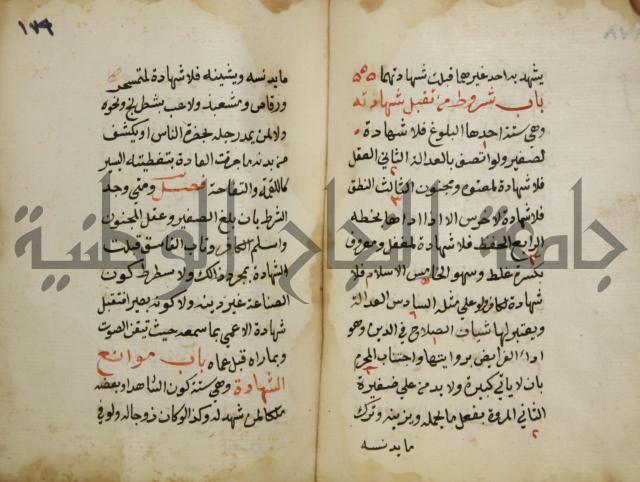 يشهد به احد غيرهما قبلت شهادتهما
باب شروط من تقبل شهادته
وهي ستة احدها البلوغ فلا شهادة
لصغير ولو اتصف بالعدالة الثاني العقل
فلا شهادة لمعتوه ومجنون الثالث النطق
فلا شهادة لاخرس الا اذا اداها بخطه
الرابع الحفظ فلا شهادة لمغفل ومعروف
بكثرة غلط وسهو الخامس الاسلام فلا
شهادة لكافر ولو على مثله السادس العدالة
ويعتبر لها شيان الصلاح في الدين وهو
اداء الفرايض برواتبها واجتناب المحرم
بان لا ياتي كبيرة ولا يدمن على صغيرة
الثاني المروة بفعل ما يجمله ويزينه وترك
ما يدنسه
١٧٩
ما يدنسه ويشينه فلا شهادة لمتمسخر
ورقاص ومشعبذ ولاعب بشطرنج ونحوه
ولا لمن يمد رجله بحضرة الناس او يكشف
من بدنه ما جرت العادة بتغطيته اليسير
كاللقمة والتفاحة فصل ومتى وجد
الشرط بان بلغ الصغير وعقل المجنون
واسلم الكافر وتاب الفاسق قبلت
الشهادة بمجرد ذلك ولا يشترط كون
الصناعة غير دنيه ولا كونه بصيرا فتقبل
شهادة الاعمى بما سمعه حيث تيقن الصوت
وبما راه قبل عماه باب موانع
الشهادة وهي ستة كون الشاهد او بعضه
ملكا لمن شهد له وكذا لو كان زوجا له ولو في
جامعة النجاح الوطنية